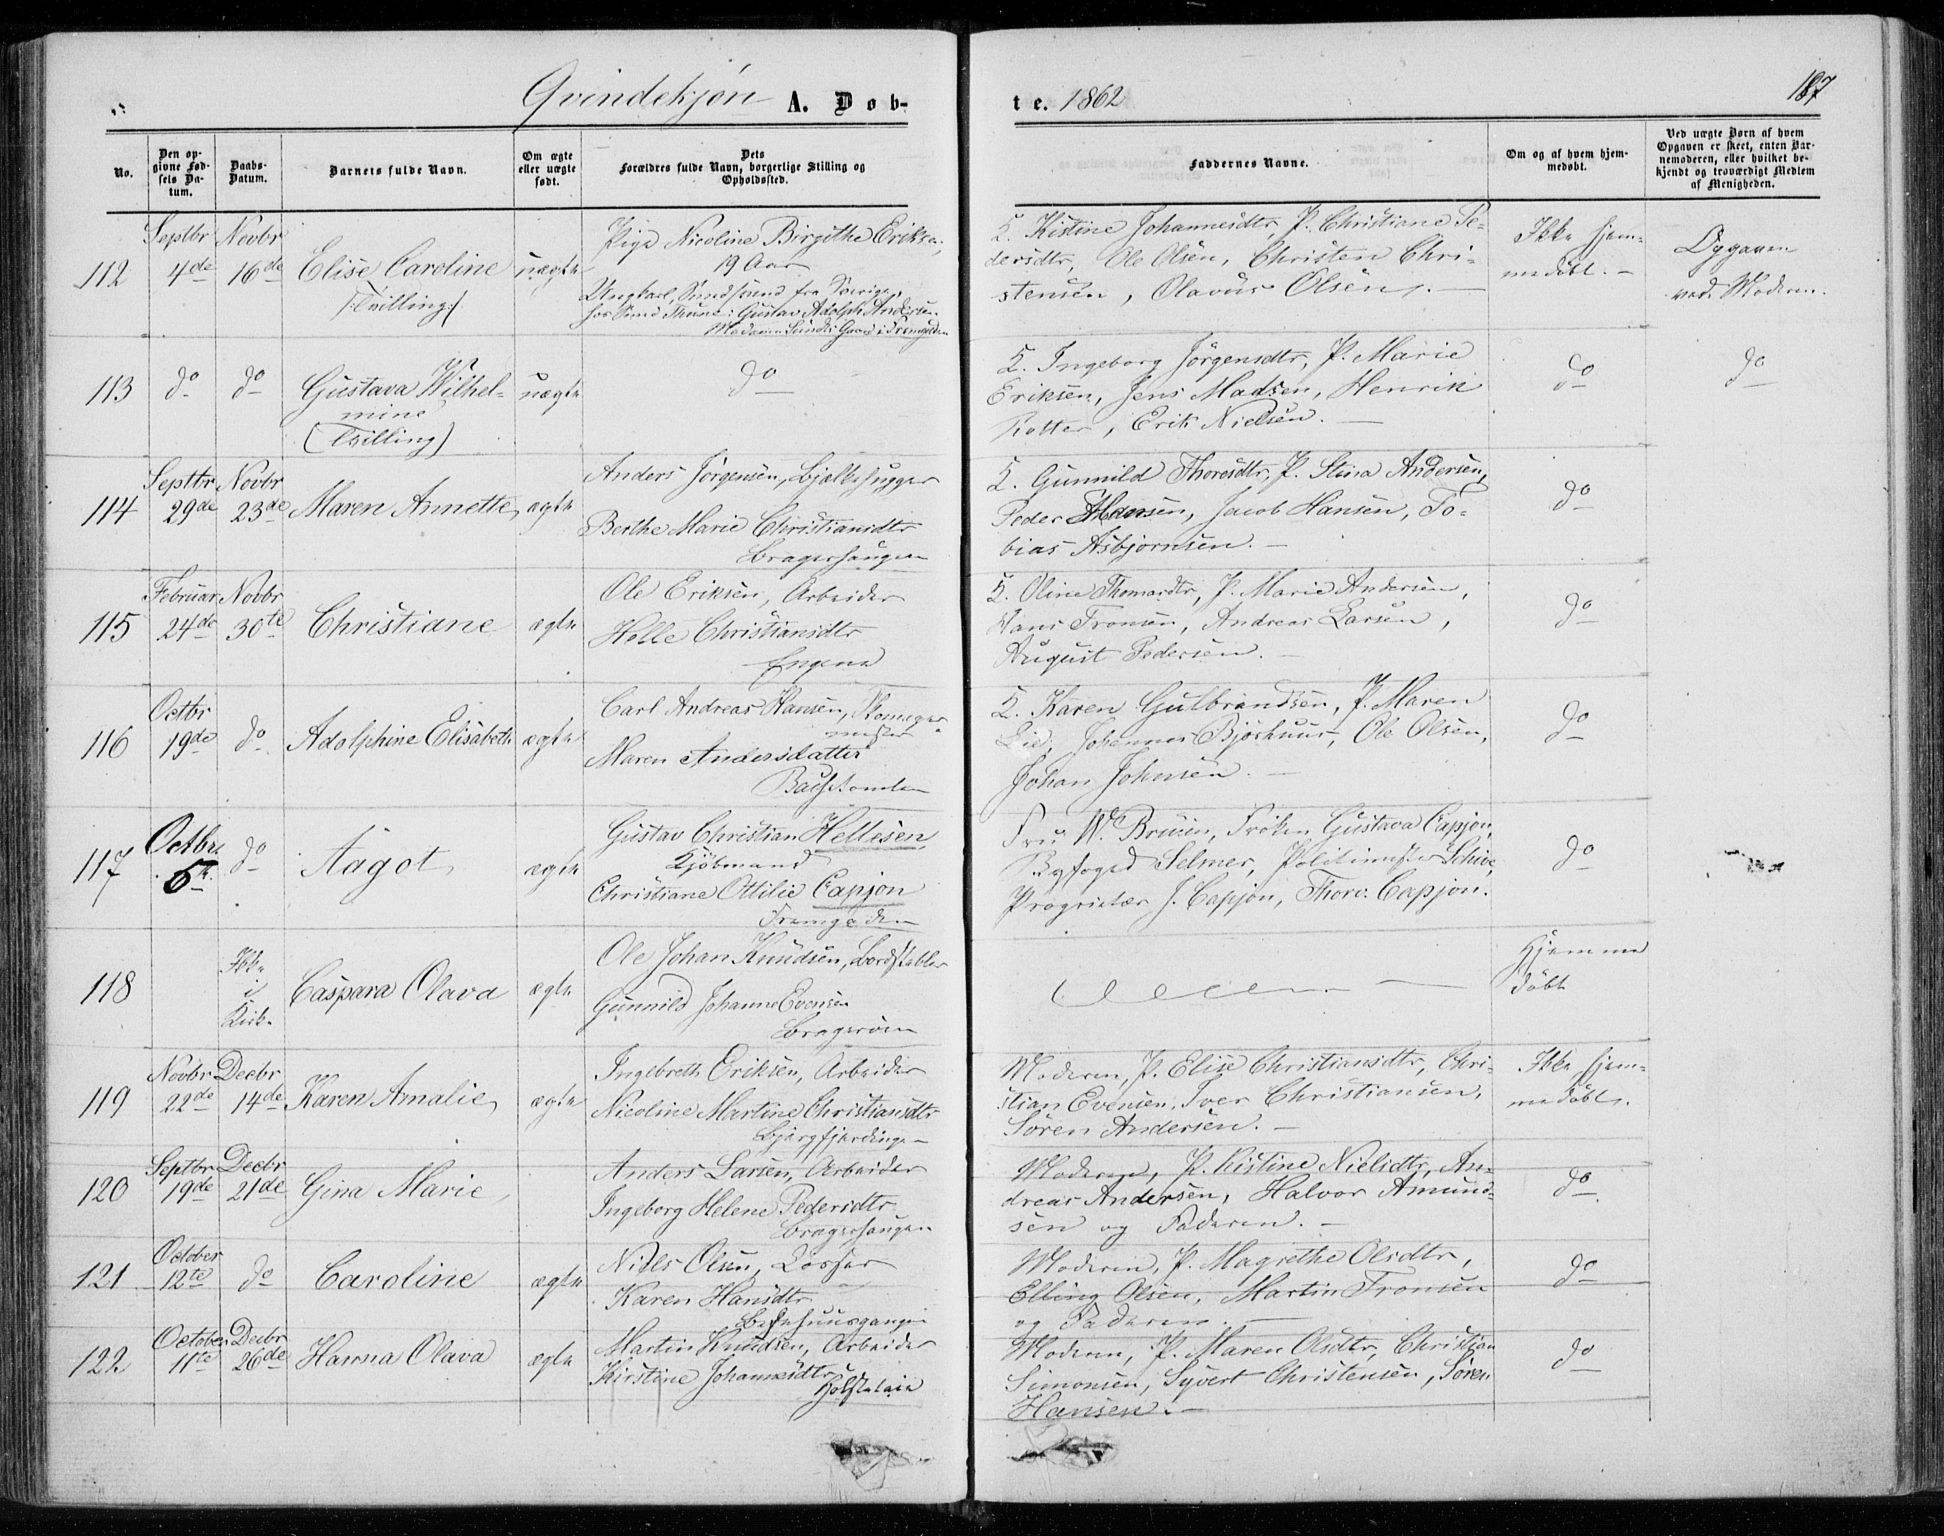 Qvindekjøn A. Døb-
te. 1862
187
No.
Den op-
givne Fød-
sels Da-
tum.
Daabs-
Datum.
Barnets fulde Navn.
Om ægte
eller uægte
født.
Dets
Forældres fulde Navn, borgerlige Stilling og
Opholdssted.
Faddernes Navne.
Om og af hvem hjem-
medøbt.
Ved uægte Børn af hvem
Opgaven er skeet, enten Bar-
nemoderen, eller hvilket be-
kjendt og troværdigt Medlem
af Menigheden.
112
Septbr
4de
Novbr
16de
Elise Caroline
/:Tvilling:/
uægte
Pige Nicoline Birgithe Eriksen,
19 Aar
Ungkarl, fra Sverige,
Gustav Adolph Andersen.
Q. Kistine Johannesdtr, P. Christiane Pe-
dersdtr, Ole Olsen, Christen Chri-
stensen, Olavus Olsen.
Ikke hjem-
medøbt.
Opgaven
ved Moderen.
113
do
do
Gustava Wilhel-
mine
(Tvilling)
uægte
do
Q. Ingeborg Jörgensdtr, P. Marie
Eriksen, Jens Madsen, Henrik
Rotter, Erik Nielsen.
do
do
114
Septbr
29de
Novbr
23de
Maren Annette
ægte
Anders Jörgensen, Bjelkehugger
Berthe Marie Christiansdtr
Bragerhaugen
Q. Gunnild Thoresdtr, P. Stina Andersen,
Peder Hansen, Jacob Hansen, To-
bias Asbjörnsen.
do
115
Februar
24de
Novbr
30te
Christiane
ægte
Ole Eriksen, Arbeider
Helle Christiansdtr
Engene
Q. Oline Thomasdtr, P. Marie Andersen,
Hans Tronsen, Andreas Larsen,
August Pedersen.
do
116
Octbr
19de
do
Adolphine Elisabeth
ægte
Carl Andreas Hansen, Skomager
mester
Maren Andersdatter
Q. Karen Gulbrandsen, P. Maren
Lie, Johannes Bjöshuus, Ole Olsen,
Johan Johnsen.
do
117
Octbr.
5te
do
Aagot
ægte
Gustav Christian Hellesen,
Kjöbmand
Christiane Ottilie Capjon
Strømgaden
Fru W. Bruun, Fröken Gustava Capjon,
Byfoged Selmer, Politimester Schive,
Proprietær J. Capjon, Thorv. Capjon.
do
118
Ikke
i
Kirke
Caspara Olava
ægte
Ole Johan Knudsen, Bordstabler
Gunnild Johanne Evensen
Bragerøen
Hjemme
døbt
119
Novbr
22de
Decbr
14de
Karen Amalie
ægte
Ingebreth Eriksen, Arbeider
Nicoline Martine Christiansdtr
Bjergfjerdingen
Moderen, P. Elise Christiansdtr, Chri-
stian Evensen, Iver Christiansen,
Søren Andersen.
Ikke hjem-
medøbt.
120
Septbr
19de
Decbr
21de
Gina Marie
Anders Larsen, Arbeider
Ingeborg Helene Pedersdtr
Bragerhaugen
Moderen, P. Kistine Nielsdtr, An-
dreas Andersen, Halvor Amund-
sen og Faderen.
do
121
October
12te
do
Caroline
ægte
Niels Olsen, Losser
Karen Hansdtr
Moderen, P. Magrethe Olsdtr,
Elling Olsen, Martin Tronsen
og Faderen.
do
122
October
11te
Decbr
26de
Hanna Olava
ægte
Martin Knudsen, Arbeider
Kirstine Johannesdtr
Moderen, P. Maren Olsdtr, Christian
Simonsen, Syvert Christensen, Søren
Hansen.
do